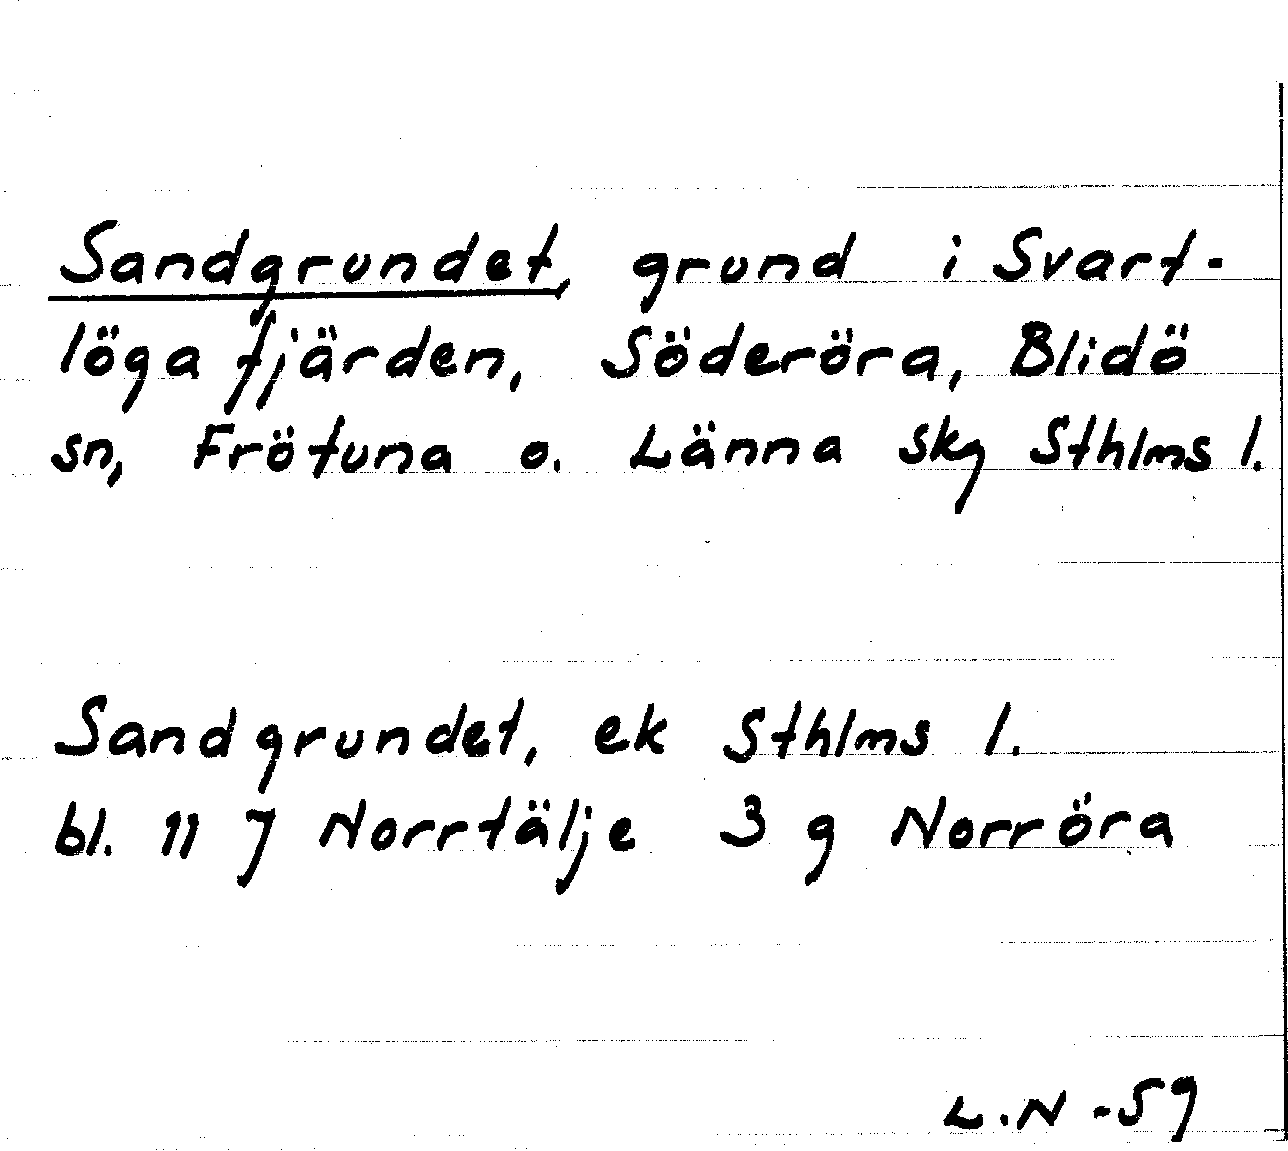 Sandgrundet, grund i Svart-
löga fjärden, Söderöra, Blidö
sn, Frötuna o. Länna skg Sthlms l.
Sandgrundet, ek Sthlms l.
bl. 11 J Norrtälje 3 g Norröra
L.N -59